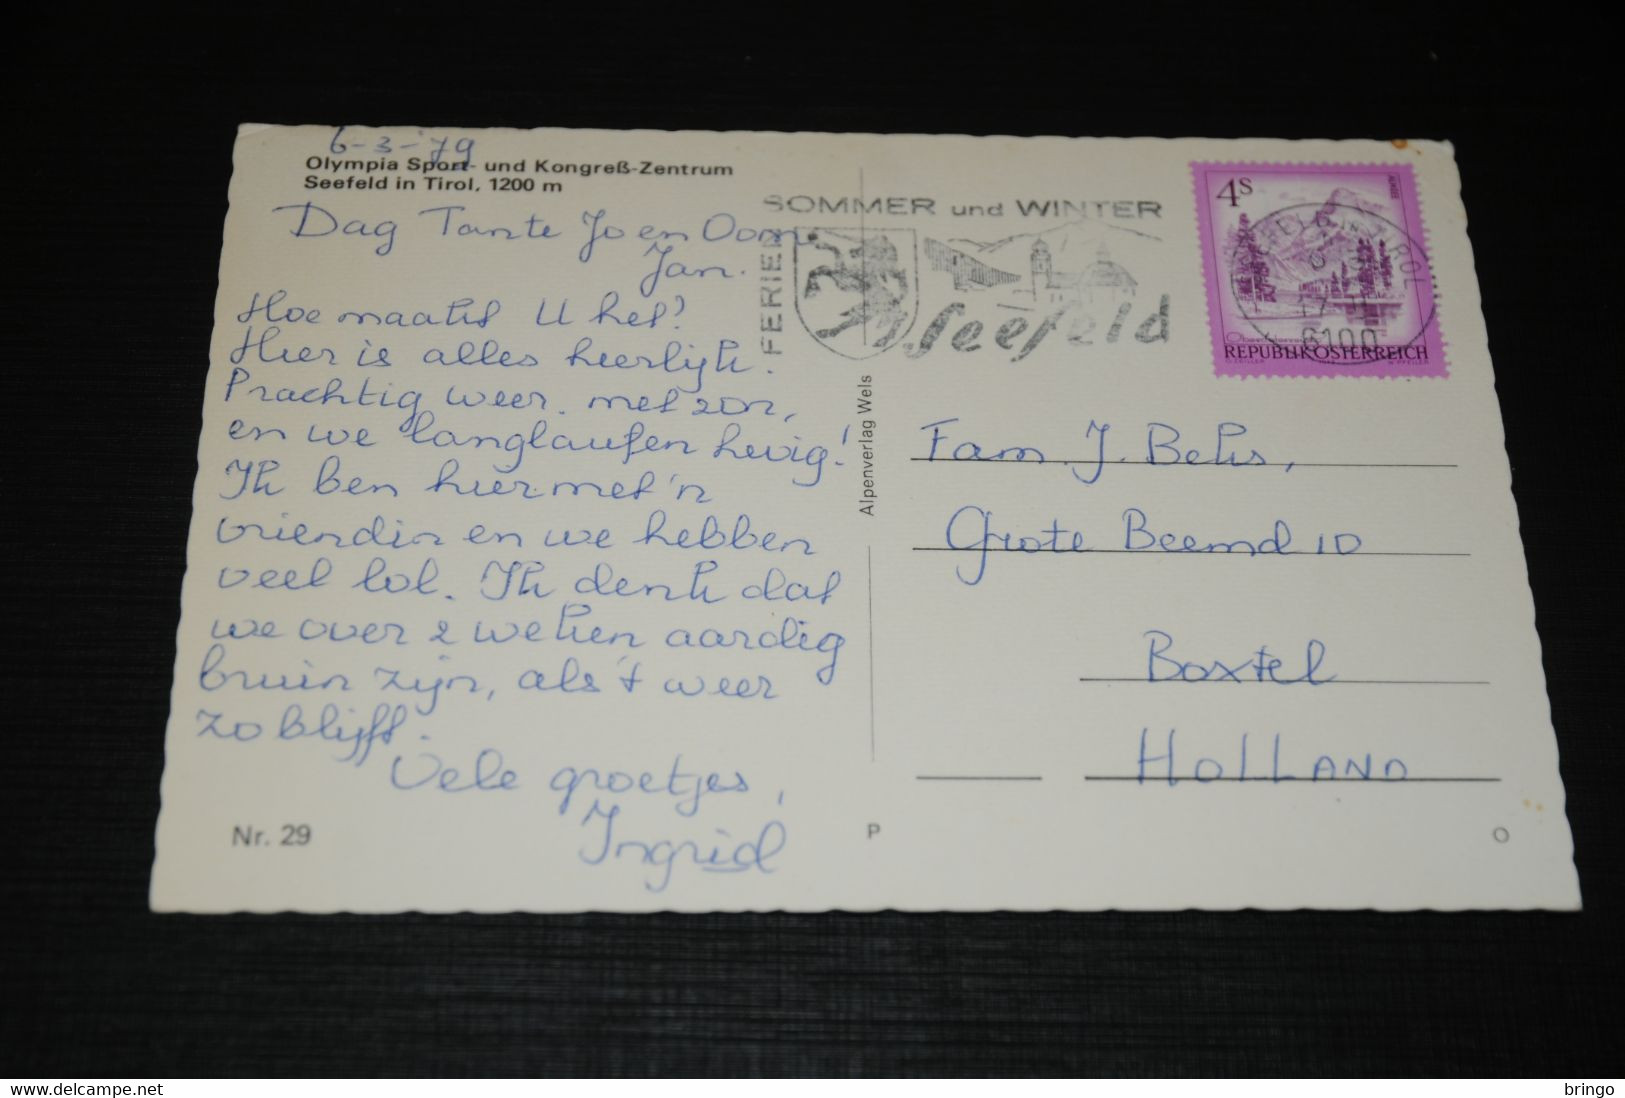 6-3-'79
Olympia Sport- und Kongreß-Zentrum
Seefeld in Tirol, 1200 m
Dag Tante Jo en Oom
Jan.
Hoe maakt U het?
Hier is alles heerlijk.
Prachtig weer. met zon,
en we langlaufen hevig!
Ik ben hier met 'n
vriendin en we hebben
veel lol. Ik denk dat
we over 2 weken aardig
bruin zijn, als 't weer
zo blijft.
Vele groetjes,
Ingrid
Nr. 29
FERIEN
SOMMER und WINTER
Seefeld
Alpenverlag Wels
P
4S
ALMSEE
SEEFELD IN TIROL
6100
REPUBLIK ÖSTERREICH
Fam. J. Beks,
Grote Beemd 10
Boxtel
HOLLAND
O
www.delcampe.net
bringo